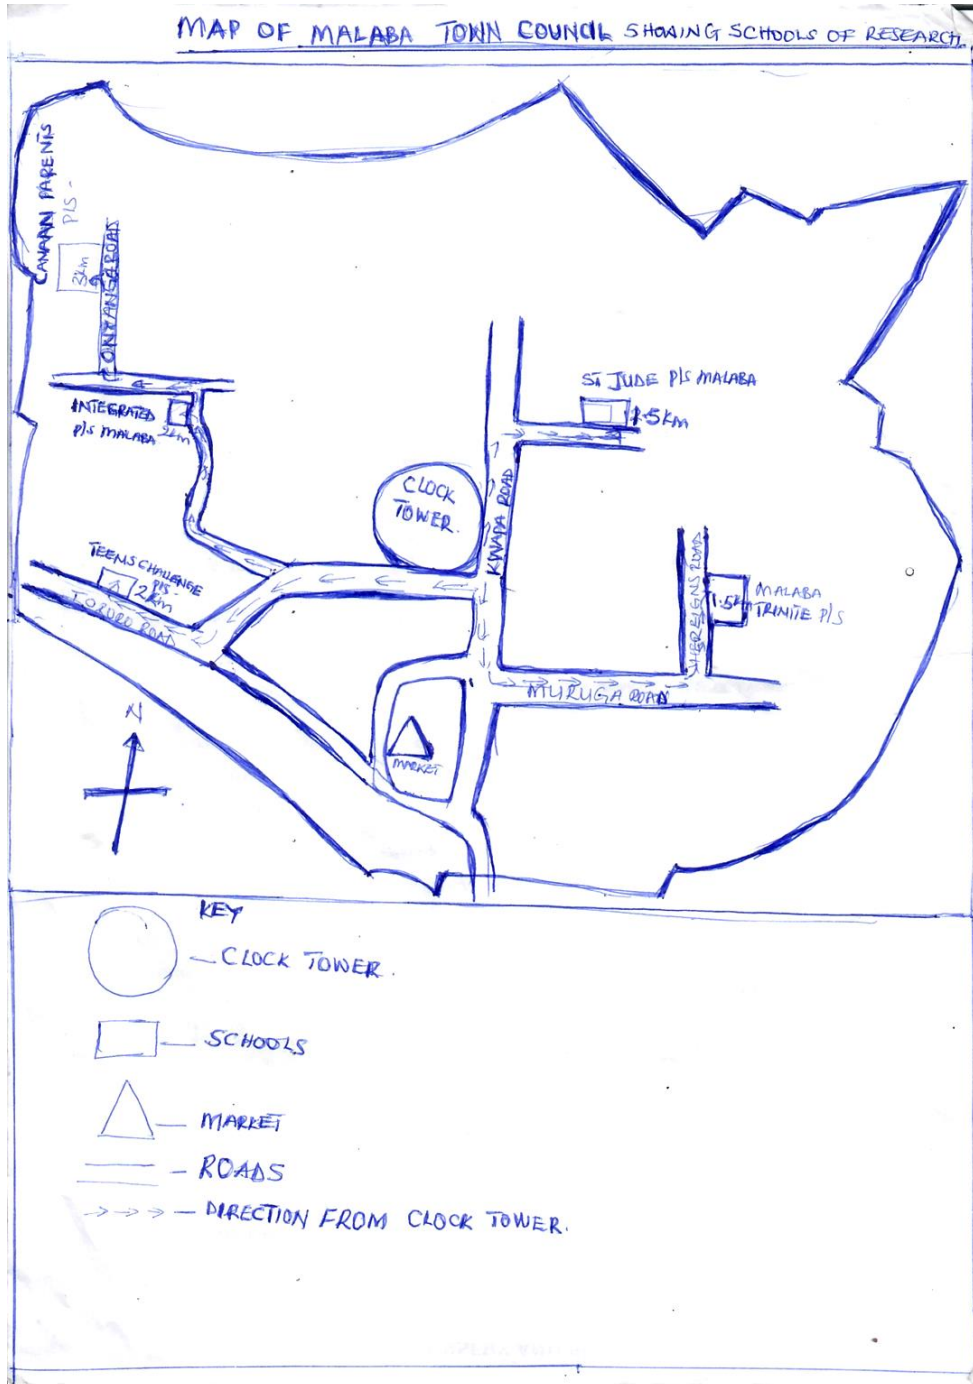 MAP OF MALABA TOWN COUNCIL SHOWING SCHOOLS OF RESEARCH.
CANAAN PARENTS
P/S -
3km
ROAD
INTEGRATED
P/S MALABA
2km
ST JUDE P/S MALABA
1.5KM
CLOCK
TOWER.
KWAPA ROAD
TEENS CHALLENGE
P/S -
2km
TORORO ROAD
ROAD
1.5k
MALABA
TRINITE P/S
MURUGA ROAD
MARKET
N
KEY
— CLOCK TOWER.
— SCHOOLS
— MARKET
— ROADS
— DIRECTION FROM CLOCK TOWER.